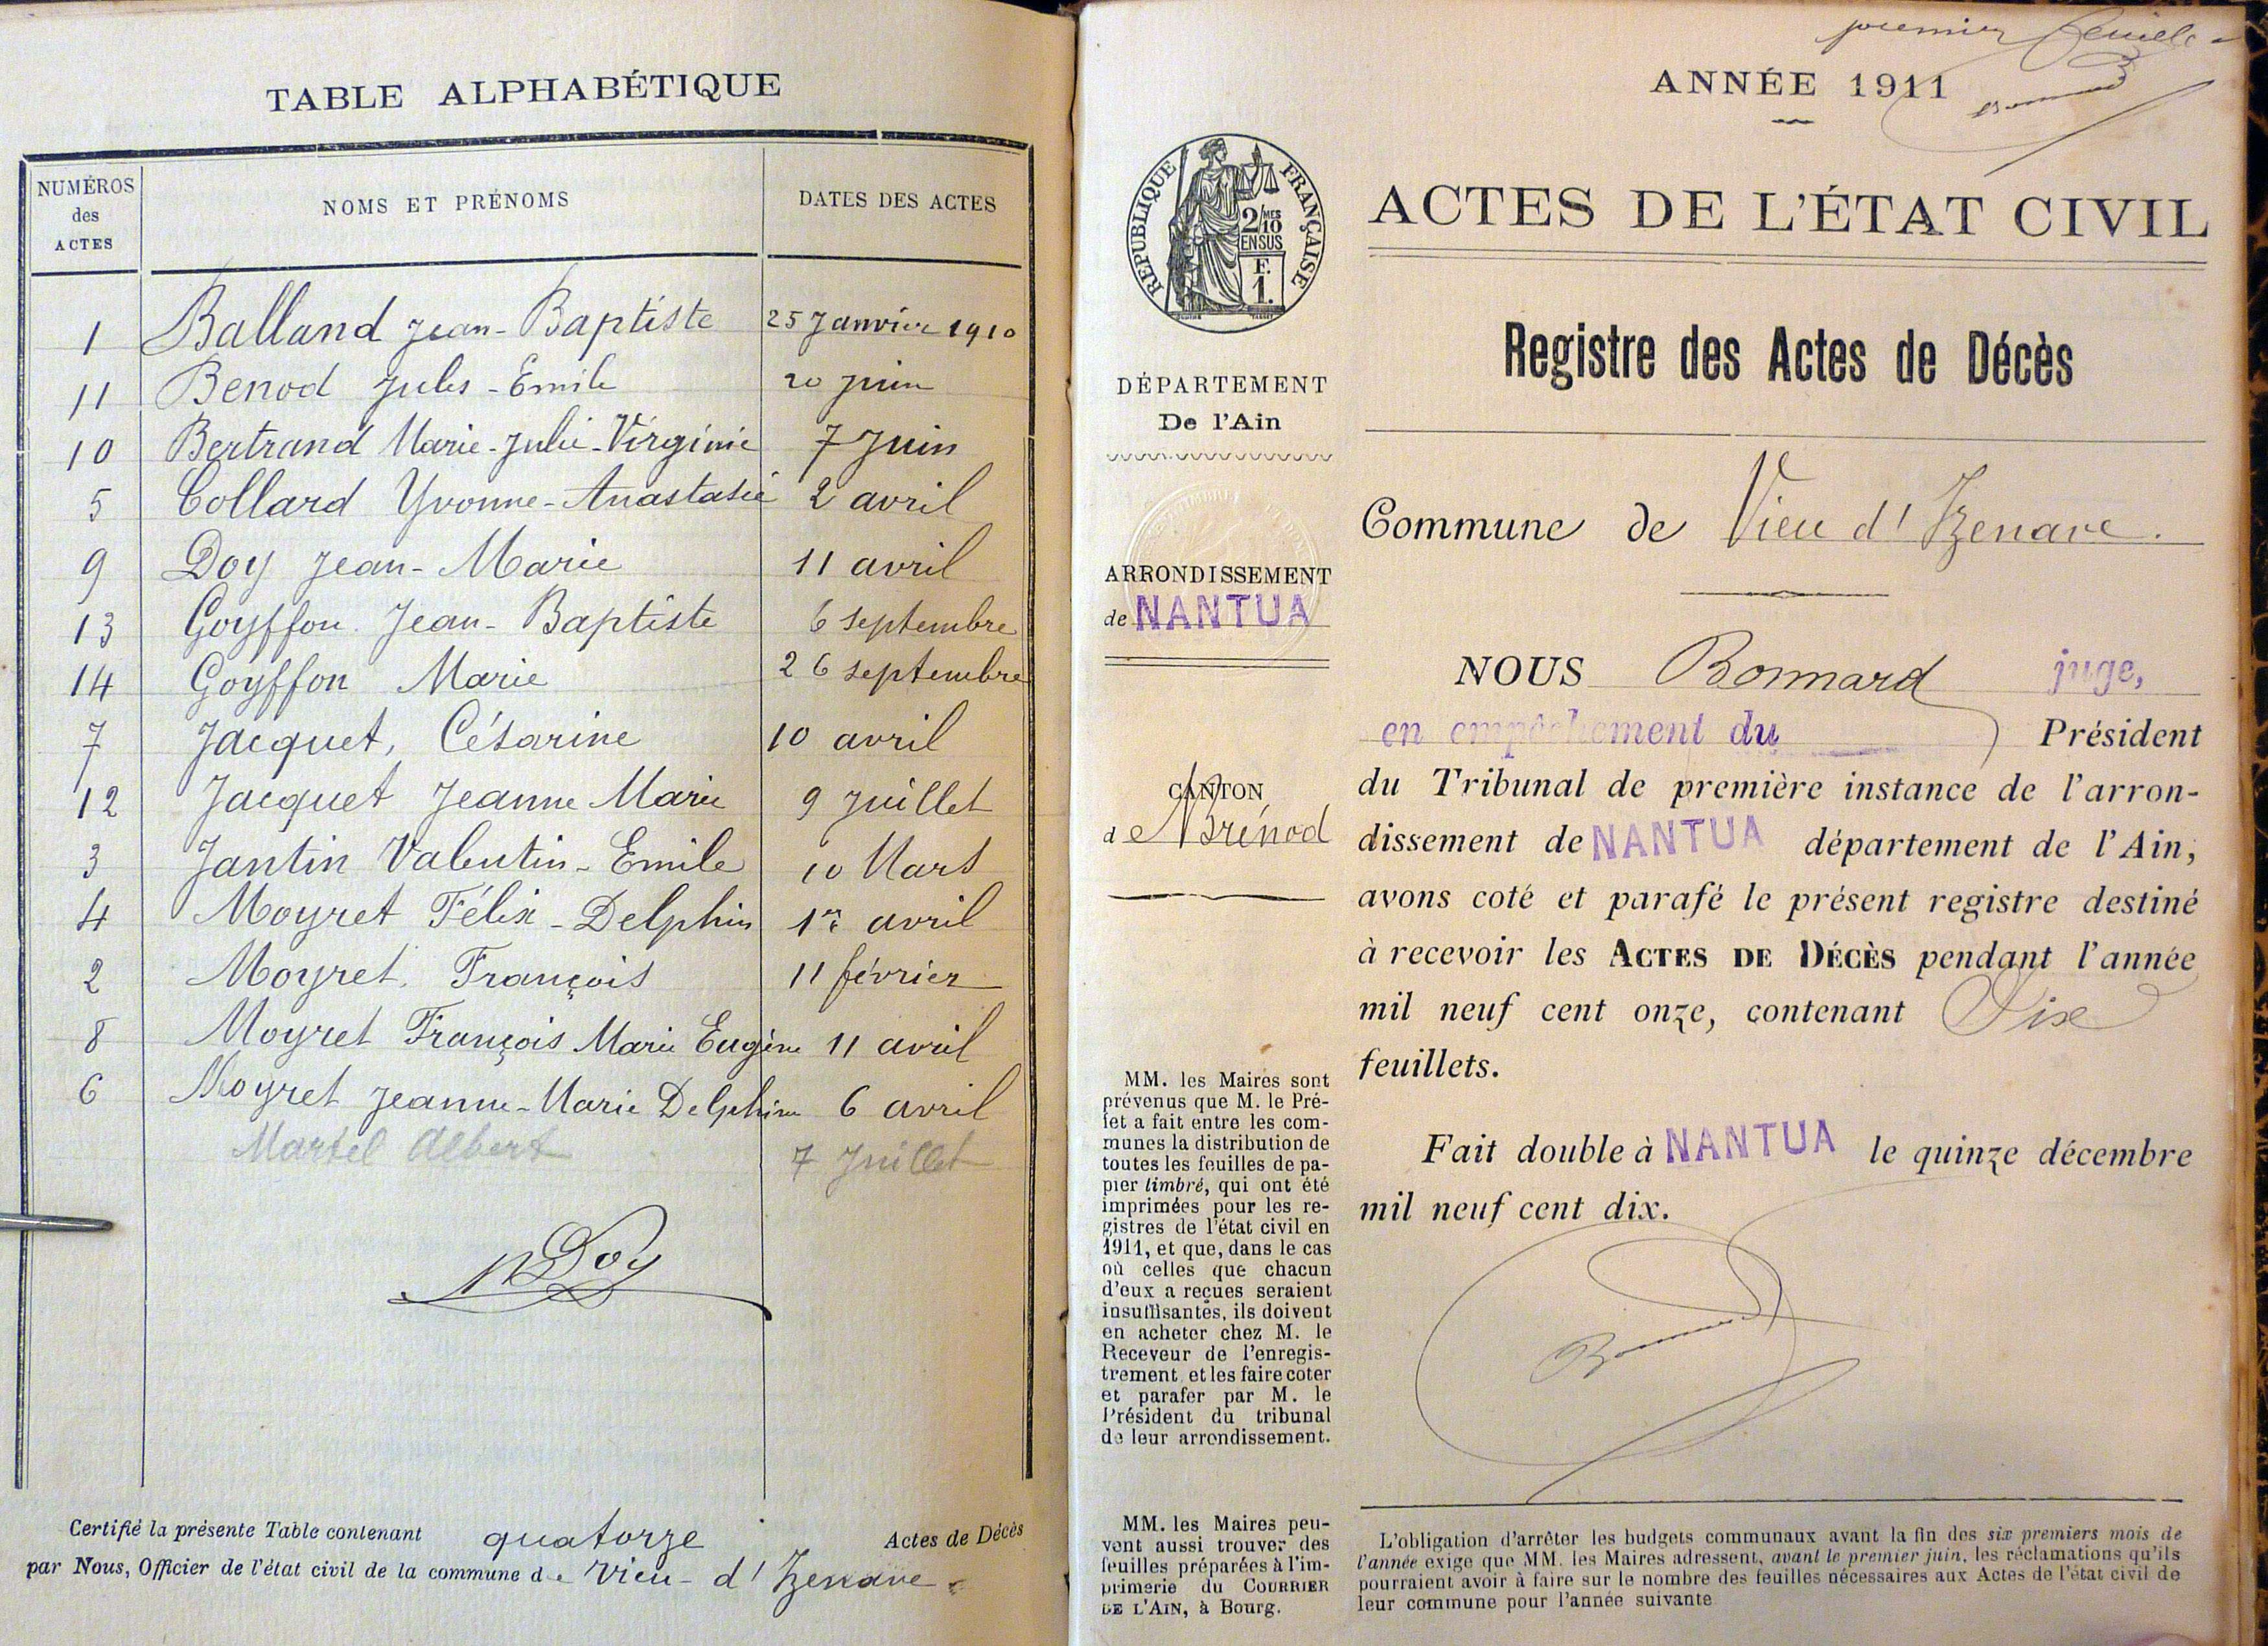 TABLE ALPHABÉTIQUE
NUMÉROS des ACTES
NOMS ET PRÉNOMS
DATES DES ACTES
1 Balland Jean-Baptiste 25 Janvier 1910
11 Benod Jules-Emile 20 Juin
10 Bertrand Marie-Julie-Virginie 7 Juin
5 Collard Yvonne-Anastasie 2 avril
9 Doy Jean-Marie 11 avril
13 Goyffon Jean-Baptiste 6 septembre
14 Goyffon Marie 26 septembre
7 Jacquet, Césarine 10 avril
12 Jacquet Jeanne Marie 9 Juillet
3 Jantin Valentin-Emile 10 Mars
4 Moyret Félix-Delphin 1er avril
2 Moyret François 11 février
8 Moyret François Marie Eugène 11 avril
6 Moyret Jeanne-Marie Delphine 6 avril
Martel Albert 7 Juillet
Doy
Certifié la présente Table contenant quatorze Actes de Décès
par Nous, Officier de l'état civil de la commune de Vieu-d'Izenave
premier feuillet
ANNÉE 1911
RÉPUBLIQUE FRANÇAISE
2/10 MES
EN SUS
F.
1.
ACTES DE L'ÉTAT CIVIL
Registre des Actes de Décès
DÉPARTEMENT
De l'Ain
Commune de Vieu d'Izenave.
ARRONDISSEMENT
de NANTUA
CANTON
de Brénod
NOUS Bonnard juge,
en empêchement du Président
du Tribunal de première instance de l'arron-
dissement de NANTUA département de l'Ain,
avons coté et parafé le présent registre destiné
à recevoir les ACTES DE DÉCÈS pendant l'année
mil neuf cent onze, contenant Dix
feuillets.
Fait double à NANTUA le quinze décembre
mil neuf cent dix.
MM. les Maires sont
prévenus que M. le Pré-
fet a fait entre les com-
munes la distribution de
toutes les feuilles de pa-
pier timbré, qui ont été
imprimées pour les re-
gistres de l'état civil en
1911, et que, dans le cas
où celles que chacun
d'eux a reçues seraient
insuffisantes, ils doivent
en acheter chez M. le
Receveur de l'enregis-
trement et les faire coter
et parafer par M. le
Président du tribunal
de leur arrondissement.
MM. les Maires peu-
vent aussi trouver des
feuilles préparées à l'im-
primerie du COURRIER
DE L'AIN, à Bourg.
L'obligation d'arrêter les budgets communaux avant la fin des six premiers mois de
l'année exige que MM. les Maires adressent, avant le premier juin, les réclamations qu'ils
pourraient avoir à faire sur le nombre des feuilles nécessaires aux Actes de l'état civil de
leur commune pour l'année suivante